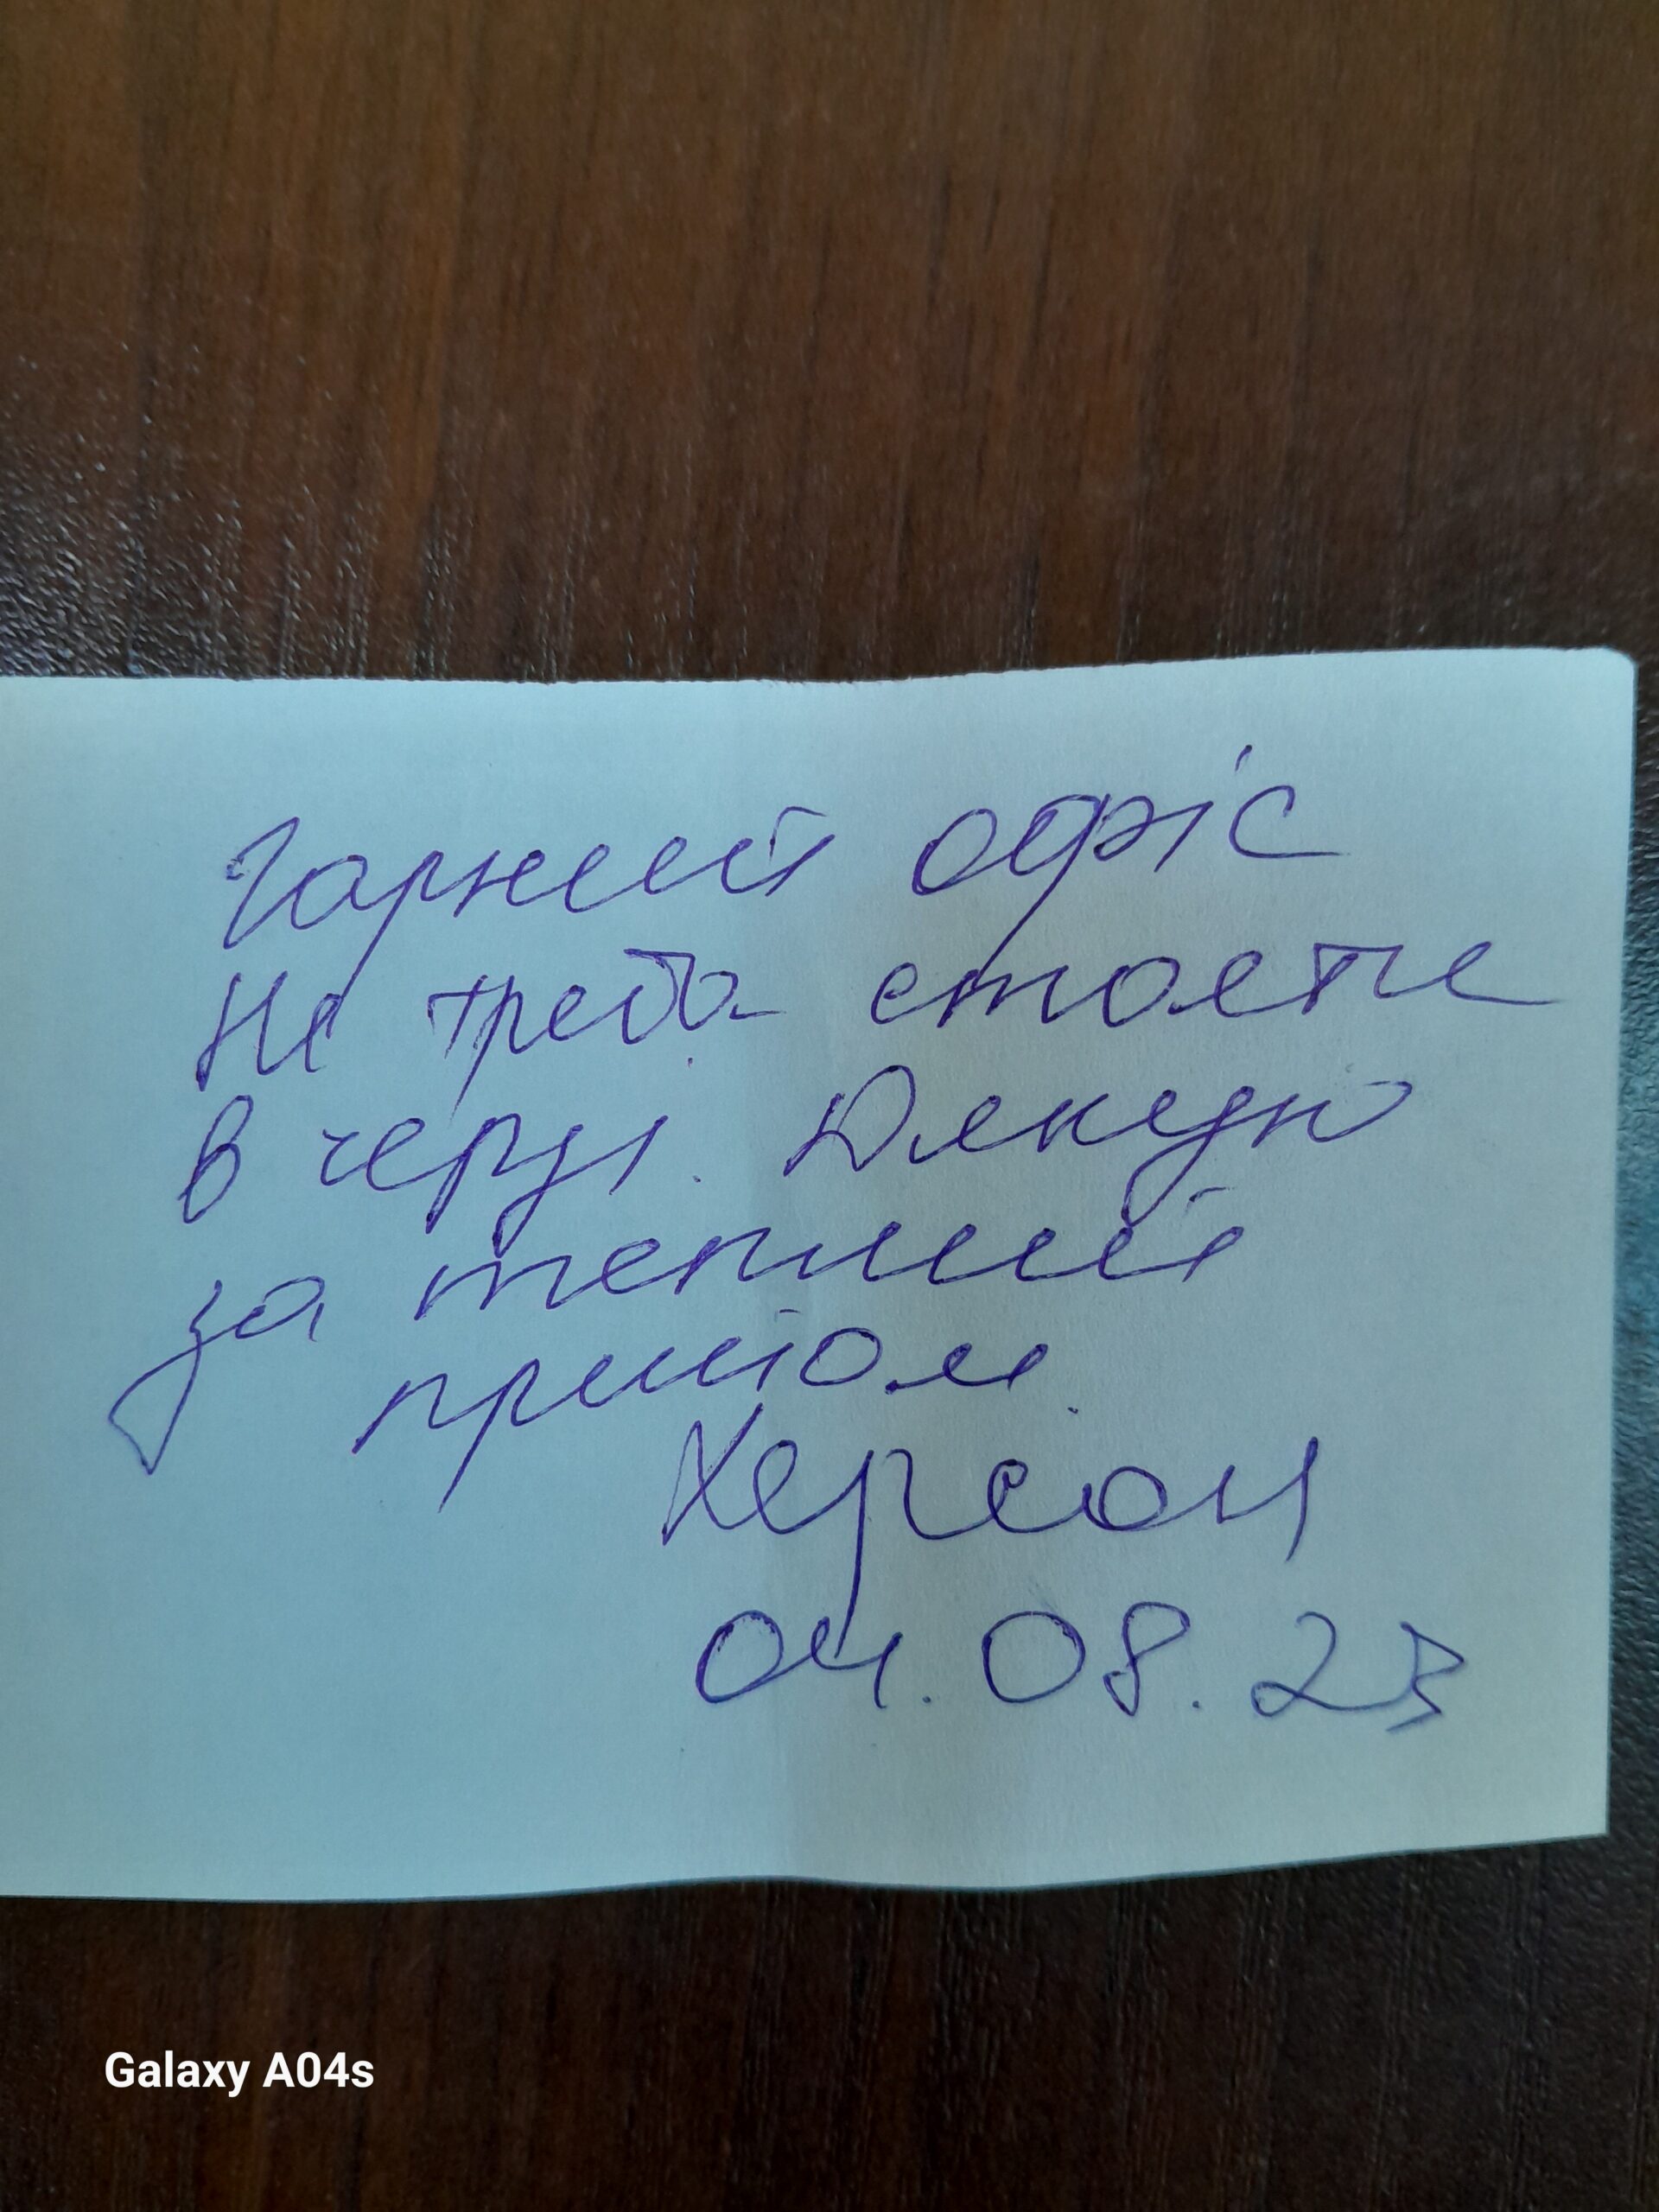 Гарний офіс
Не треба стояти
в черзі. Дякую
за теплий
прийом.
Херсон
04.08.23
Galaxy A04s